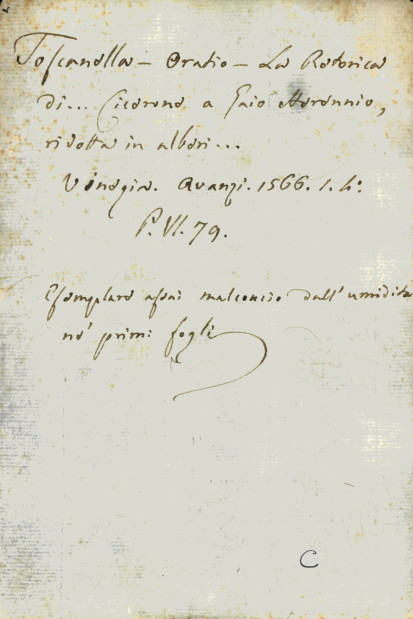 Toscanella — Oratio — La Retorica
di... Cicerone a Gaio Herennio,
ridotta in alberi...
Venegia. Avanzi. 1566. 1. 4°
P. VI. 79.
Esemplare assai malconcio dall'umidità
ne' primi fogli
C